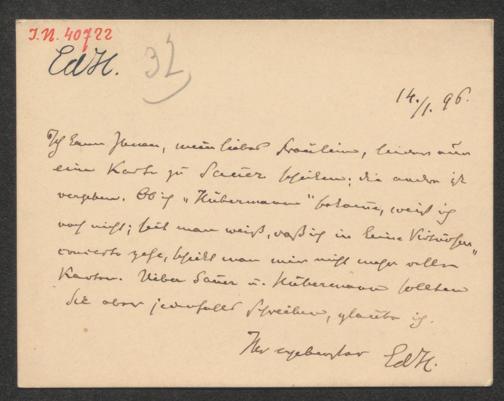 I.N. 40722
EdH.
32
14./1. 96.
Ich kann Ihnen, mein liebes Fräulein, leider nur
eine Karte zu Sauer schicken; die andre ist
vergeben. Ob ich „Hubermann" bekomme, weiß ich
noch nicht; seit man weiß, daß ich in keine Virtuosen„
concerte gehe, schickt man mir nicht mehr
Karten. Ueber Sauer u. Hubermann sollten
Sie aber jedenfalls schreiben, glaube ich.
Ihr ergebenster EdH.